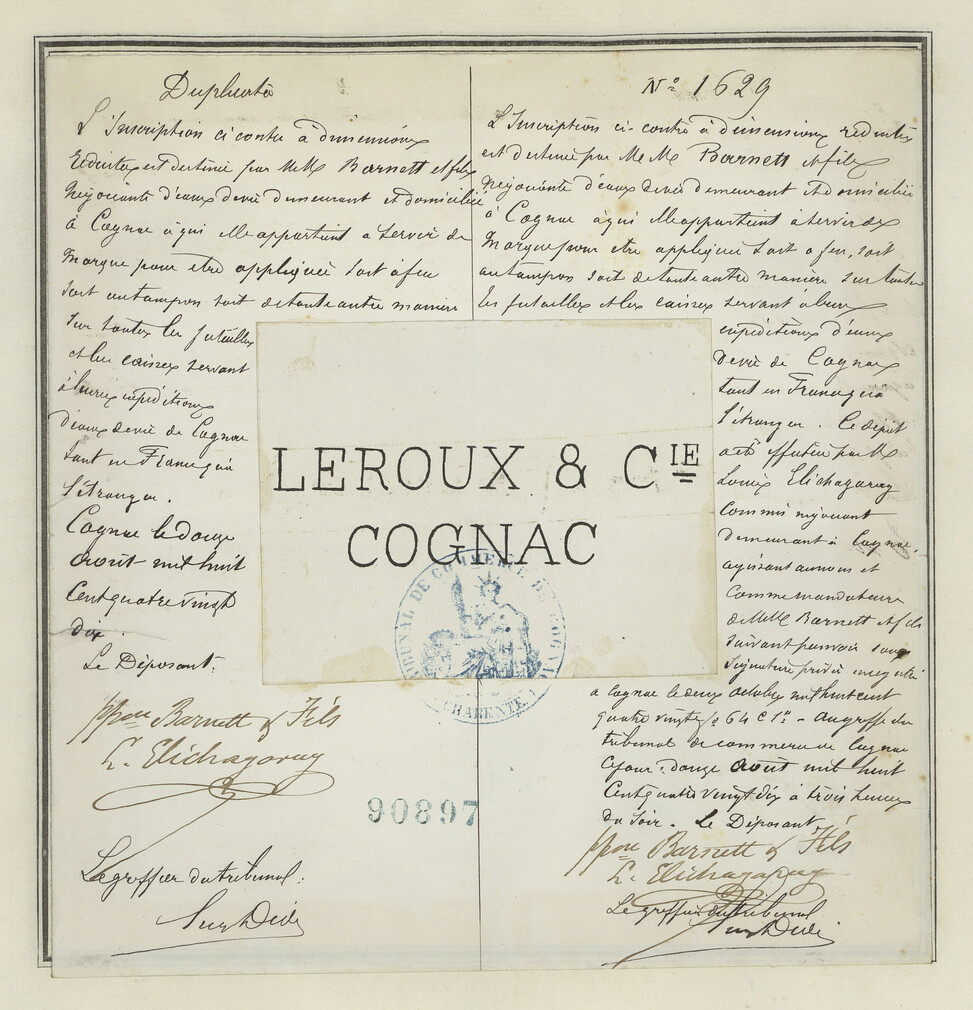 Duplicata
L'Inscription ci contre à dimensions
réduites est destinée par MM. Barnett et fils
Négociants d'eaux devie demeurant et domiciliés
à Cognac à qui elle appartient a servir de
Marque pour etre appliquée soit à feu
soit au tampon soit de toute autre manière
sur toutes les futailles
et les caisses servant
à leurs expéditions
d'eaux devie de Cognac
tant en France qu'à
l'étranger.
Cognac le douze
Août mil huit
Cent quatre vingt
dix.
Le Déposant.
ppon Barnett & Fils
L. Elichagaray
Le greffier du tribunal:
N° 1629
L'Inscription ci-contre à dimensions réduites
est destinée par MM. Barnett & fils
Négociants d'eaux devie demeurant et domiciliés
à Cognac à qui elle appartient à servir de
Marque pour etre appliquée soit a feu, soit
au tampon soit de toute autre manière sur toutes
les futailles et les caisses servant à leurs
expéditions d'eaux
devie de Cognac
tant en France qu'à
l'étranger. Ce dépôt
a été effectué par M.
Louis Elichagaray
Commis négociant
demeurant à Cognac,
agissant au nom et
Comme mandataire
de MM. Barnett & fils
suivant pouvoir sous
signature privée enregistré
a Cognac le deux octobre mil huit cent
quatre vingt f° 64 c 1° - au greffe du
tribunal de commerce de Cognac
Ce jour: douze Août mil huit
Cent quatre vingt dix à trois heures
du soir. Le Déposant
ppon Barnett & Fils
L. Elichagaray
Le greffier du tribunal
LEROUX & CIE
COGNAC
TRIBUNAL DE COMMERCE DE COGNAC
(CHARENTE)
90897